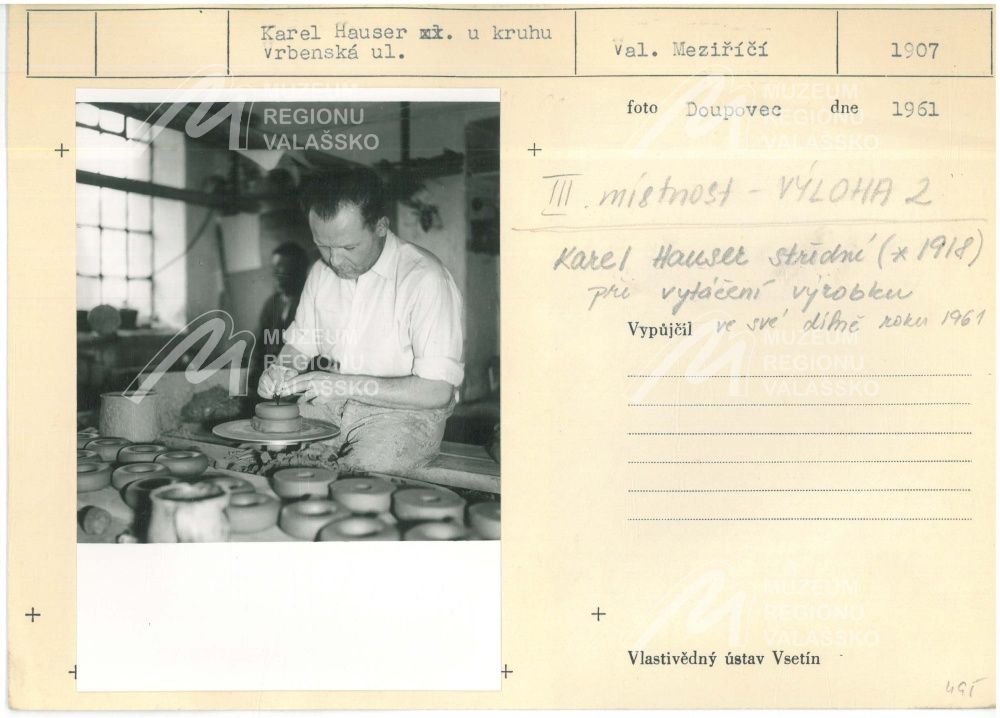 Karel Hauser xx. u kruhu
Vrbenská ul.
Val. Meziříčí
1907
foto Doupovec dne 1961
III. místnost - VÝLOHA 2
Karel Hauser střední (* 1918)
při vytáčení výrobku
ve své dílně roku 1961
Vypůjčil
Vlastivědný ústav Vsetín
MUZEUM
REGIONU
VALAŠSKO
MUZEUM
REGIONU
VALAŠSKO
MUZEUM
REGIONU
VALAŠSKO
MUZEUM
REGIONU
VALAŠSKO
MUZEUM
REGIONU
VALAŠSKO